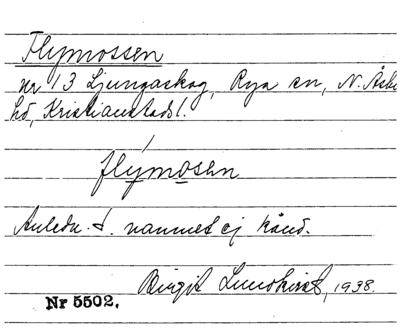 Flymossen
nr 13 Ljungaskog, Rya sn, N. Åsbo
hd, Kristianstads l.
flýmosen
Anledn. t. namnet ej känd.
Birgit Lundkvist, 1938.
Nr 5502.